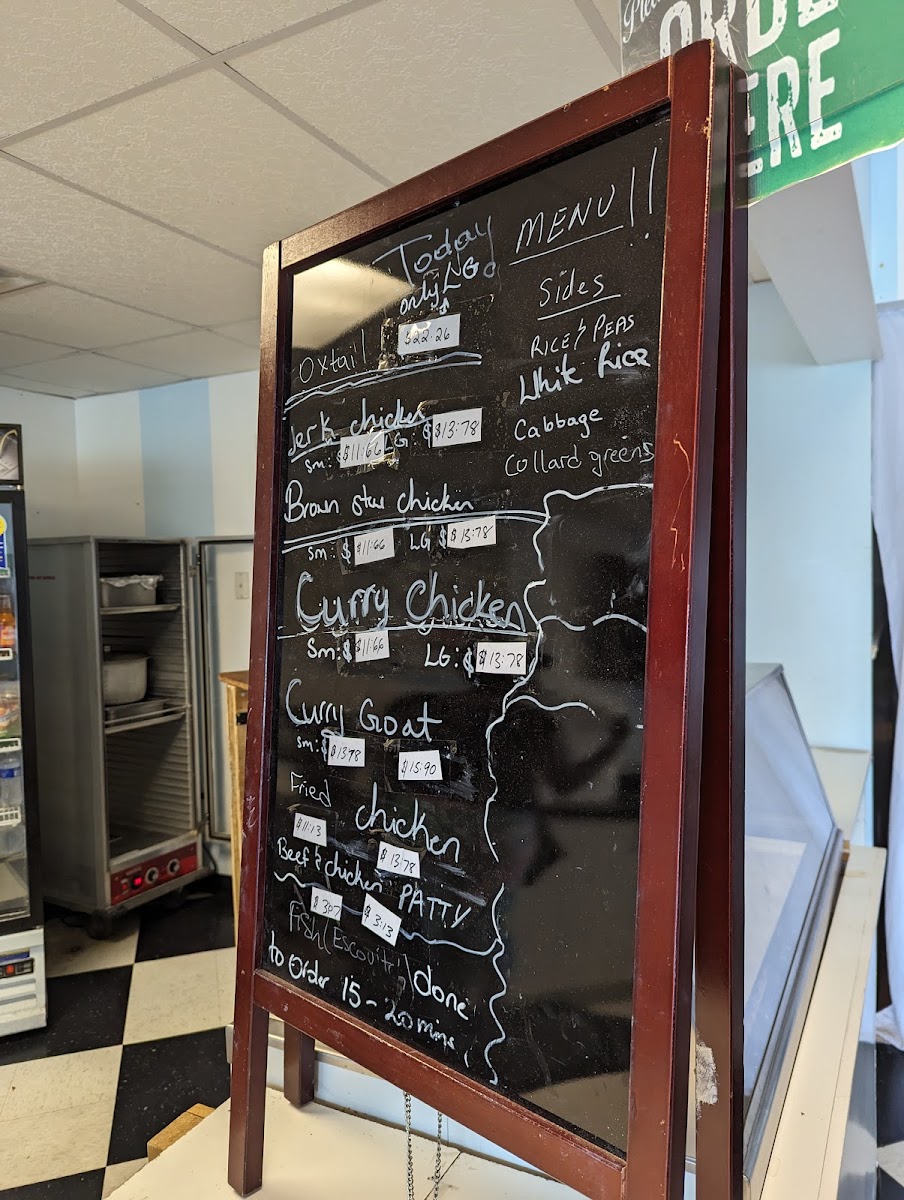 ORDE
ERE
Today MENU!!
only LG
Oxtail $22.26
Jerk chicken
Sm: $ $11.66 LG: $ $13.78
Brown stew chicken
Sm: $ $11.66 LG $ $13.78
Curry Chicken
Sm: $ $11.66 LG: $ $13.78
Curry Goat
Sm: $ $13.78 $15.90
Fried chicken
$11.13 $13.78
Beef & chicken PATTY
$3.13
Fish (Escovitch) done
to Order 15-20 mins
Sides
RICE & PEAS
White Rice
Cabbage
Collard greens